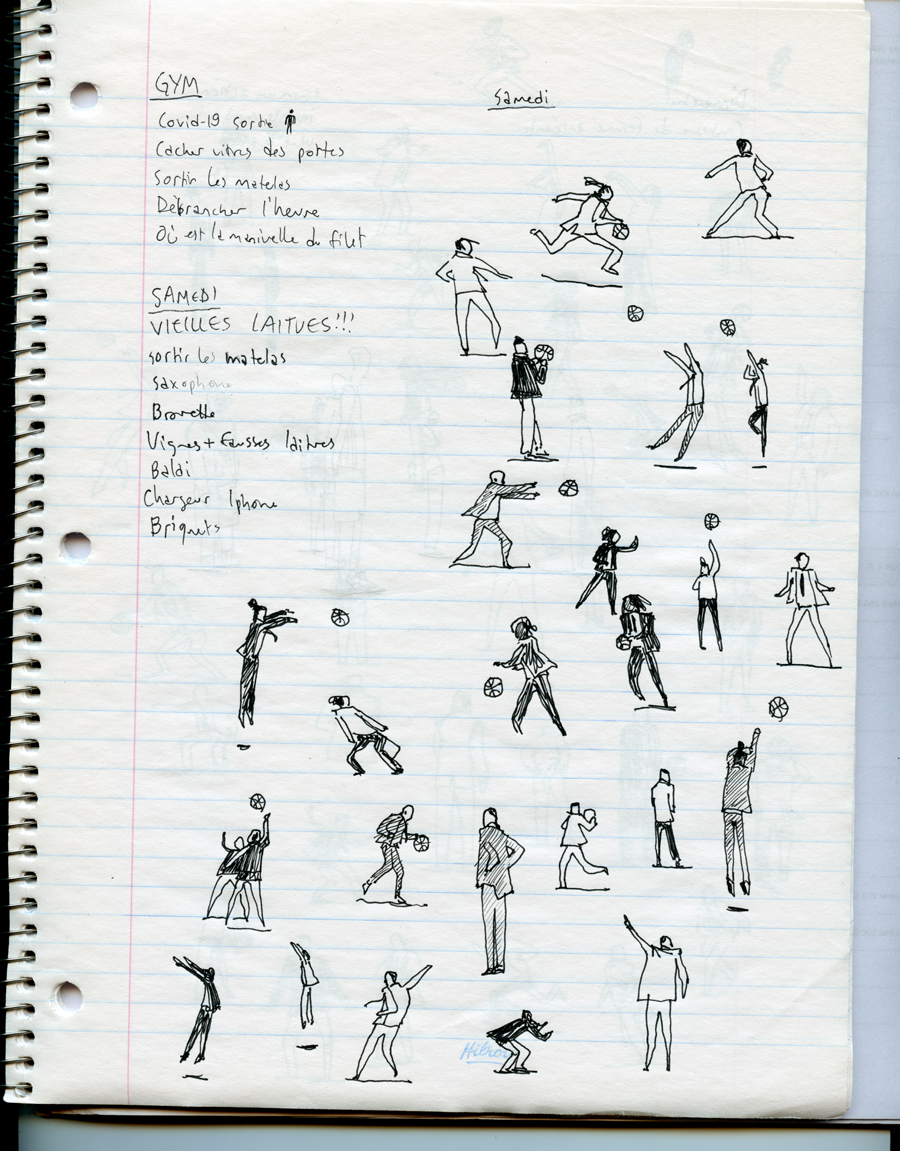 GYM
Samedi
Covid-19 sortie
Cacher vitres des portes
Sortir les matelas
Débrancher l'heure
Où est la manivelle du filet
SAMEDI
VIEILLES LAITUES!!!
sortir les matelas
Saxophone
Brouette
Vignes + fausses laitues
Balai
Chargeur Iphone
Briquets